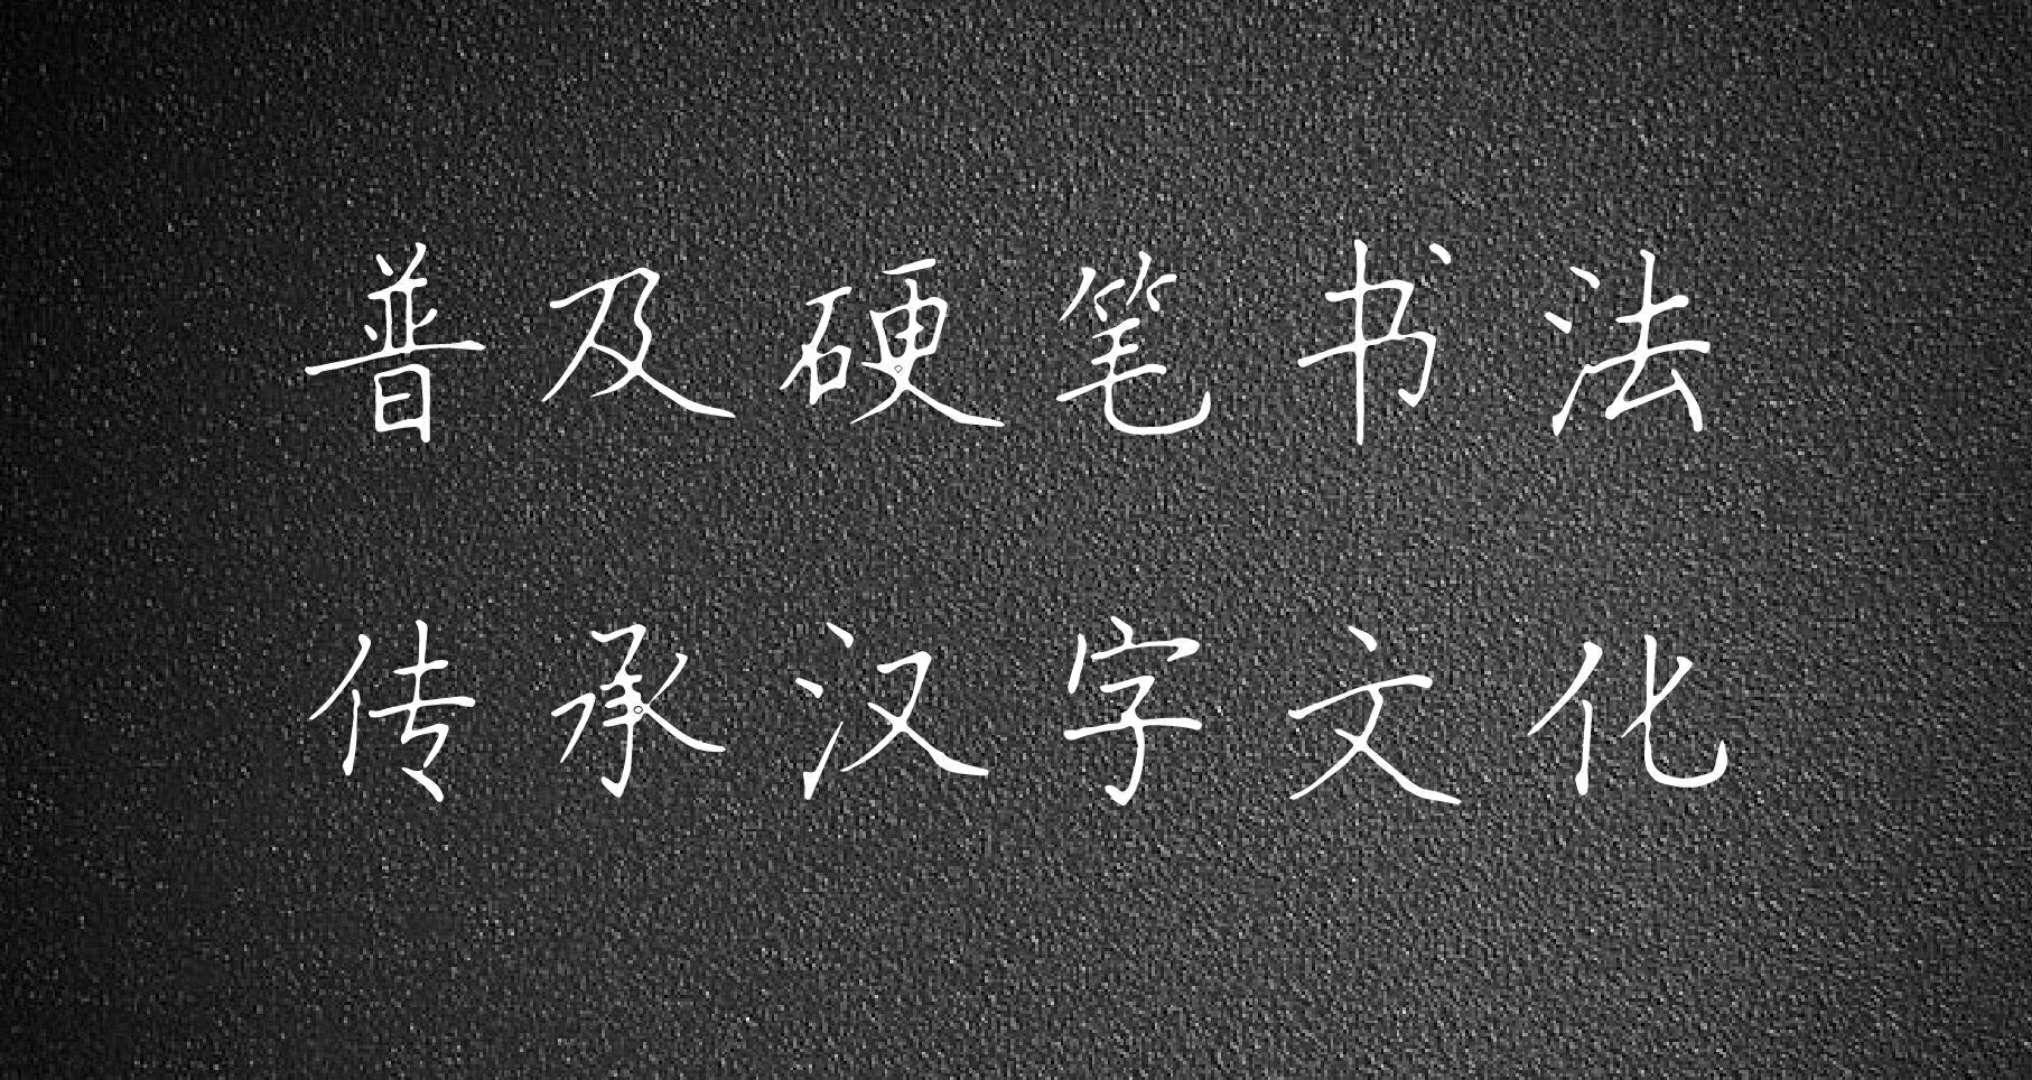 普及硬笔书法
传承汉字文化